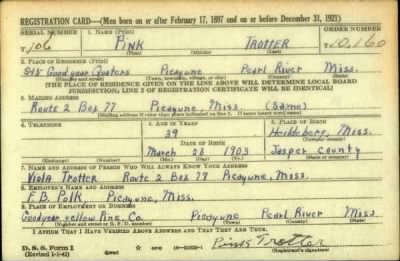 REGISTRATION CARD—(Men born on or after February 17, 1897 and on or before December 31, 1921)
SERIAL NUMBER 1. NAME (Print) ORDER NUMBER
T 106 PINK TROTTER 10,160
(First) (Middle) (Last)
2. PLACE OF RESIDENCE (Print)
Goodyear Quaters Picayune Pearl River Miss.
(Number and street) (Town, township, village, or city) (County) (State)
[THE PLACE OF RESIDENCE GIVEN ON THE LINE ABOVE WILL DETERMINE LOCAL BOARD
JURISDICTION; LINE 2 OF REGISTRATION CERTIFICATE WILL BE IDENTICAL]
3. MAILING ADDRESS
Route 2 Box 77 Picayune, Miss (Same)
[Mailing address if other than place indicated on line 2. If same insert word same]
4. TELEPHONE 5. AGE IN YEARS 6. PLACE OF BIRTH
39 Heidelberg, Miss.
DATE OF BIRTH (Town or county)
March 23 1903 Jasper County
(Exchange) (Number) (Mo.) (Day) (Yr.) (State or country)
7. NAME AND ADDRESS OF PERSON WHO WILL ALWAYS KNOW YOUR ADDRESS
Viola Trotter Route 2 Box 77 Picayune, Miss.
8. EMPLOYER'S NAME AND ADDRESS
F. B. Polk, Picayune, Miss.
9. PLACE OF EMPLOYMENT OR BUSINESS
Goodyear Yellow Pine Co. Picayune Pearl River Miss
(Number and street or R. F. D. number) (Town) (County) (State)
I AFFIRM THAT I HAVE VERIFIED ABOVE ANSWERS AND THAT THEY ARE TRUE.
D. S. S. Form 1 Pink Trotter
(Revised 1-1-42) (over) (Registrant's signature)